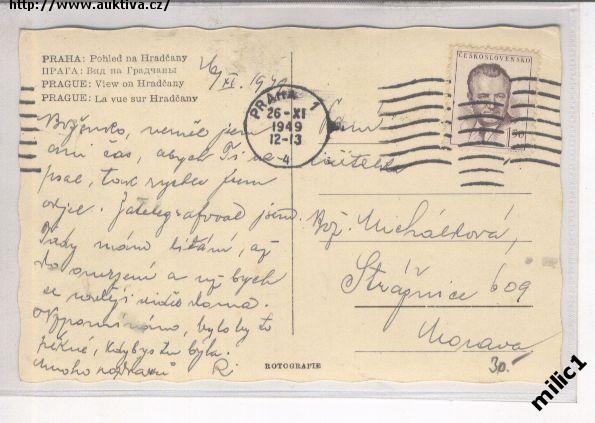 http://www.auktiva.cz/
PRAHA: Pohled na Hradčany
ПРАГА: Вид на Градчаны
PRAGUE: View on Hradčany
PRAGUE: La vue sur Hradčany
26/XI. 1949
Boženko, neměl jsem
ani čas, abych Ti na
psal, tak rychle jsem
odjel. Zatelegrafoval jsem.
Tady mám lítání, až
do omrzení a už bych
se raději viděl doma.
Vzpomínám, bylo by to
pěkné, kdybys tu byla.
Mnoho pozdravů R.
PRAHA 1
26-XI
1949
12-13
4
ČESKOSLOVENSKO
1.50
Paní
učitelka
Bož. Michálková,
Strážnice 609
Morava
30.-
ROTOGRAFIE
milic1